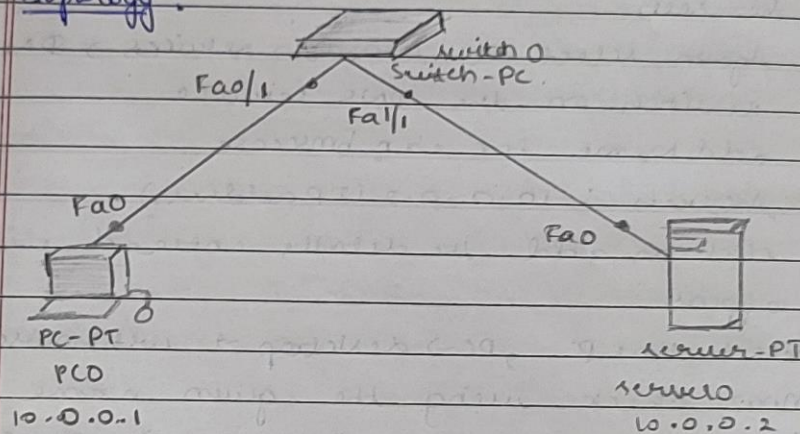 Topology.
switch 0
Switch-PC.
Fa0/1
Fa1/1
Fa0
Fa0
PC-PT
PC0
10.0.0.1
server-PT
server0
10.0.0.2